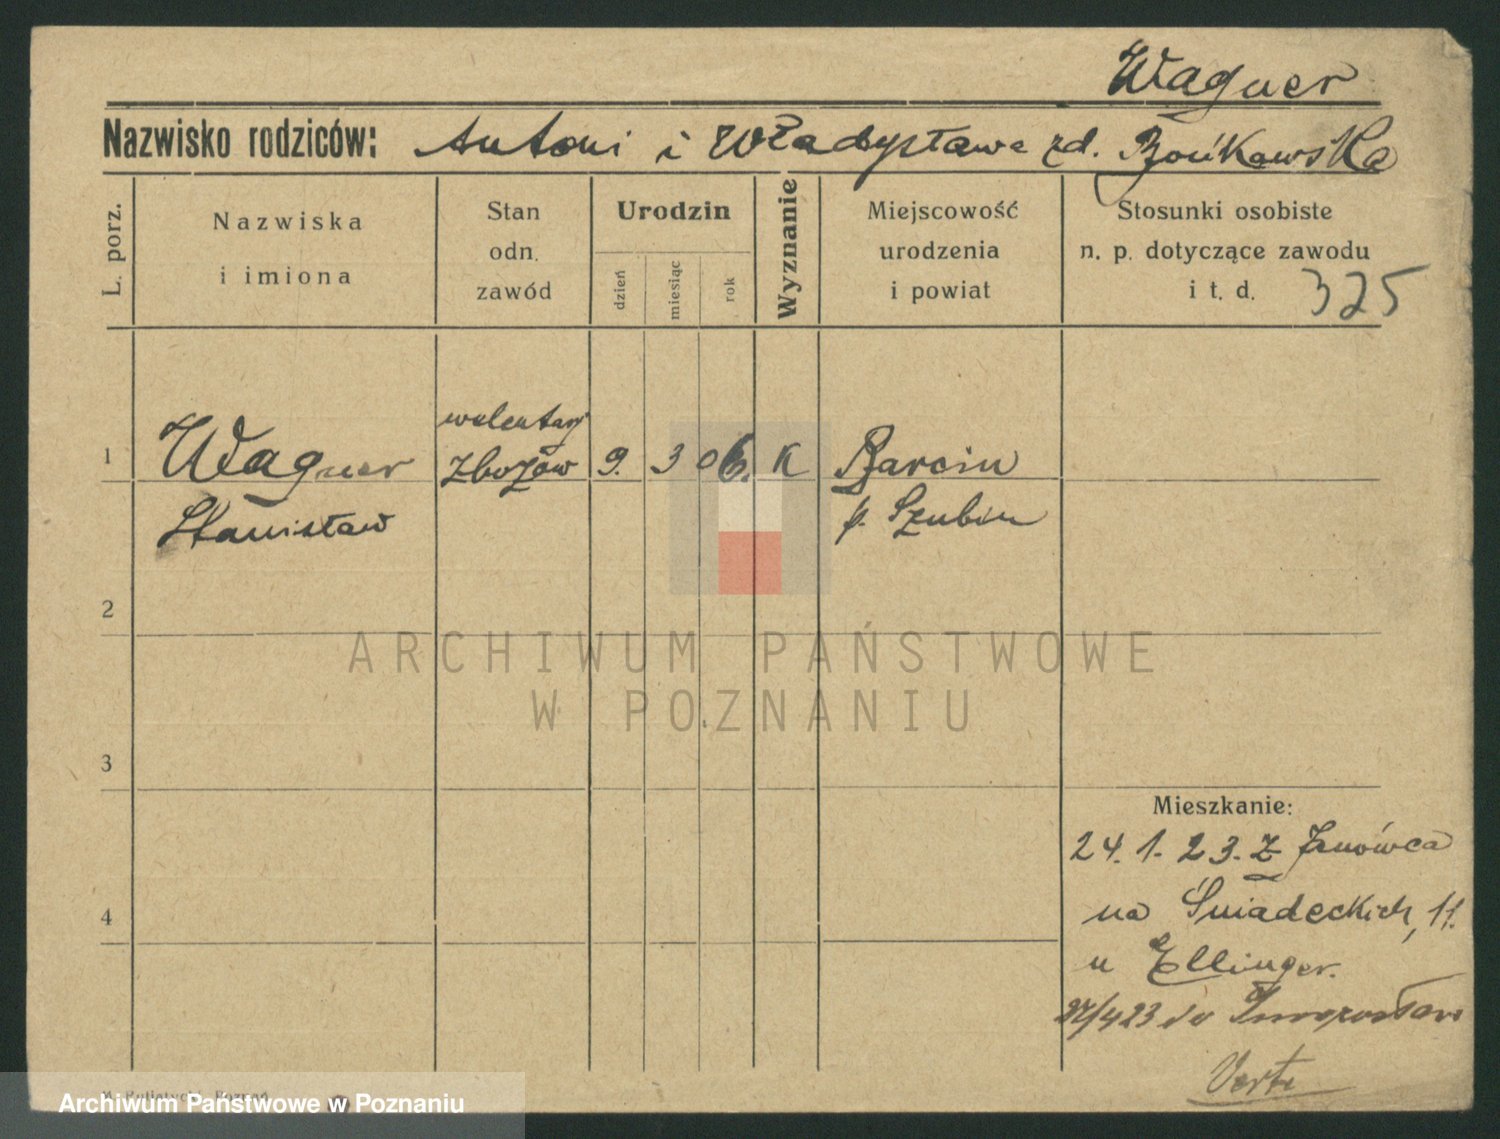 Wagner
Nazwisko rodziców: Antoni i Władysława zd. Bońkowska
L. porz.
Nazwiska
i imiona
Stan
odn.
zawód
Urodzin
dzień
miesiąc
rok
Wyznanie
Miejscowość
urodzenia
i powiat
Stosunki osobiste
n. p. dotyczące zawodu
i t. d.
325
1
Wagner
Stanisław
zbożow
9. 3 06.
K
Barcin
p. Szubin
2
ARCHIWUM PAŃSTWOWE
W POZNANIU
3
4
Mieszkanie:
24. 1. 23. z Janówca
na Śniadeckich, 11.
u Ellinger.
27/4 23 do
Verte
Archiwum Państwowe w Poznaniu